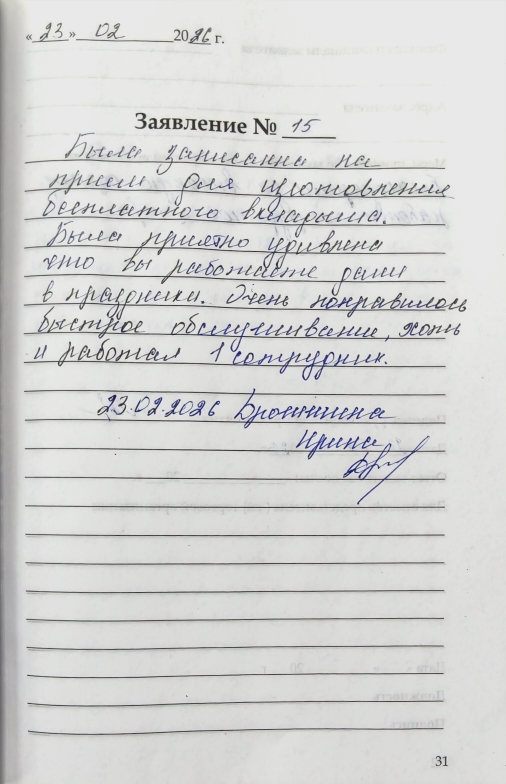 «23» 02 2026 г.
Заявление № 15
Была записанна на
прием для изготовления
бесплатного вкладыша.
Была приятно удивлена
что вы работаете даже
в праздники. Очень понравилось
быстрое обслуживание, хоть
и работал 1 сотрудник.
23.02.2026
Ирина
31